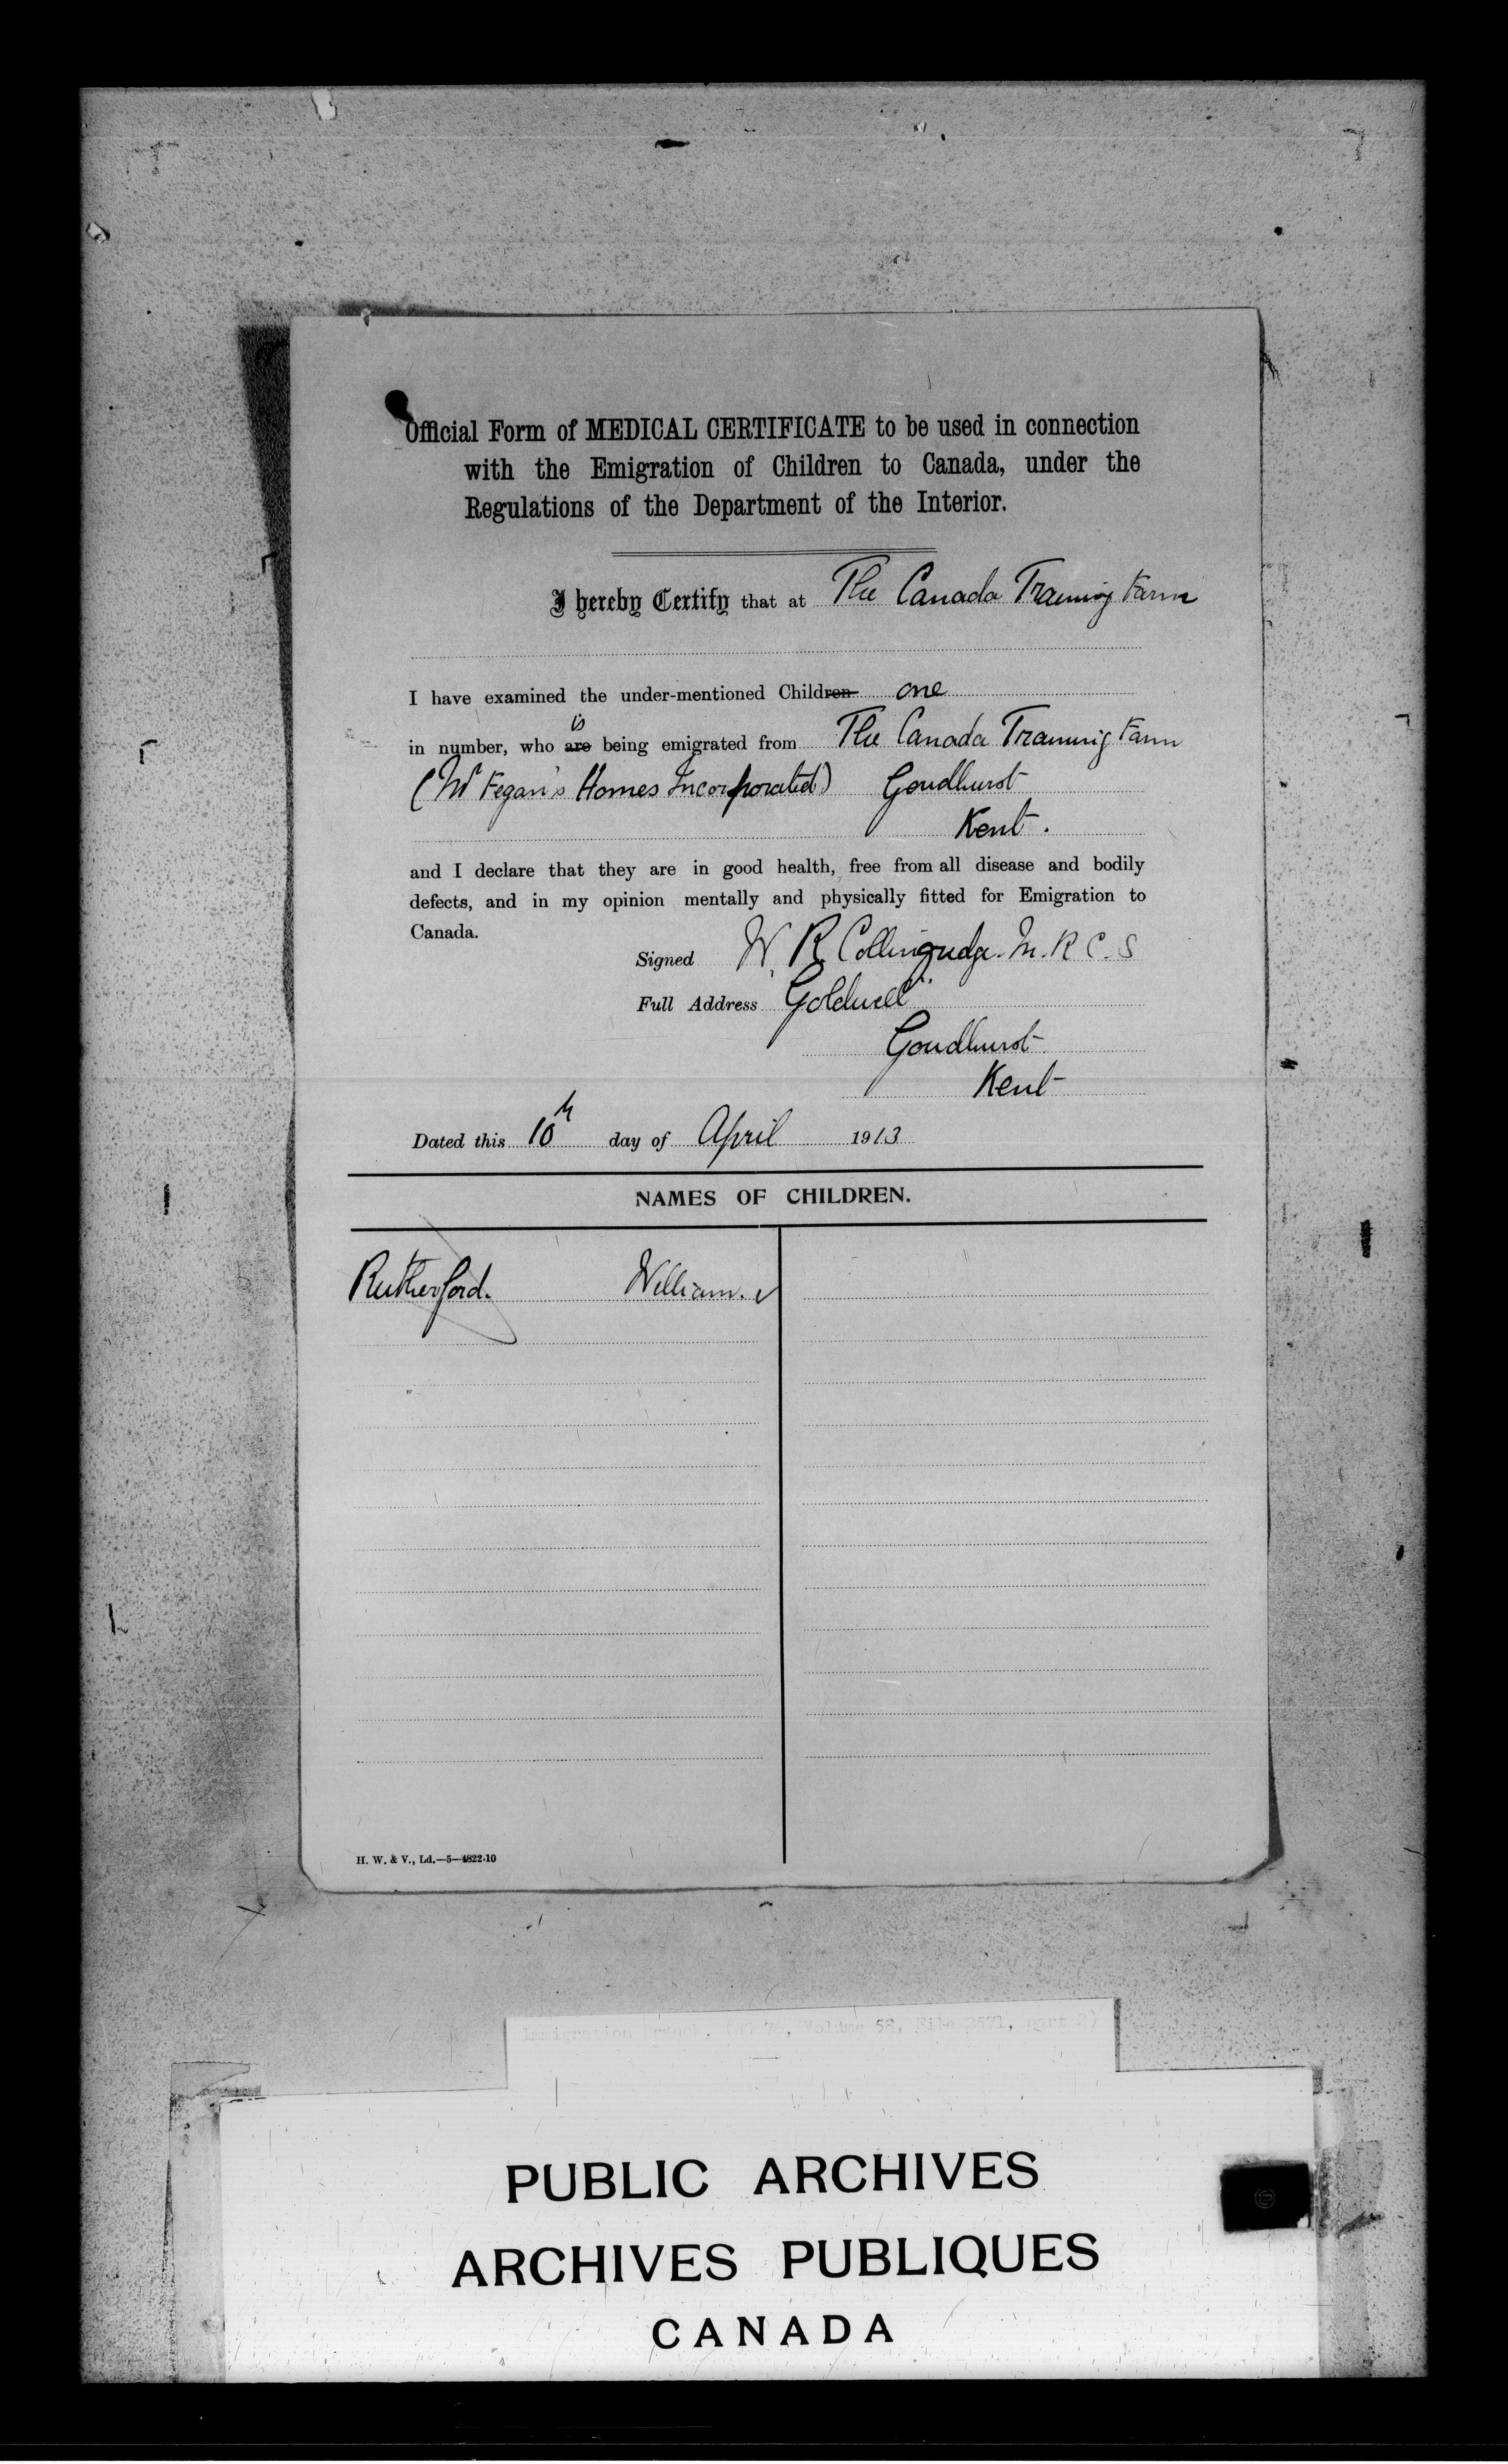 Official Form of MEDICAL CERTIFICATE to be used in connection
with the Emigration of Children to Canada, under the
Regulations of the Department of the Interior.
I hereby Certify that at The Canada Training Farm
I have examined the under-mentioned Children one
is
in number, who are being emigrated from The Canada Training Farm
(Mr Fegan's Homes Incorporated) Goudhurst
Kent.
and I declare that they are in good health, free from all disease and bodily
defects, and in my opinion mentally and physically fitted for Emigration to
Canada.
Signed W. R. Collingridge. M.R.C.S
Full Address Goldwell
Goudhurst
Kent
Dated this 10th day of April 1913
NAMES OF CHILDREN.
Rutherford. William.
H. W. & V., Ld.—5—4822-10
Immigration Branch, (RG 76, Volume 58, File 2571, part 2)
PUBLIC ARCHIVES
ARCHIVES PUBLIQUES
CANADA